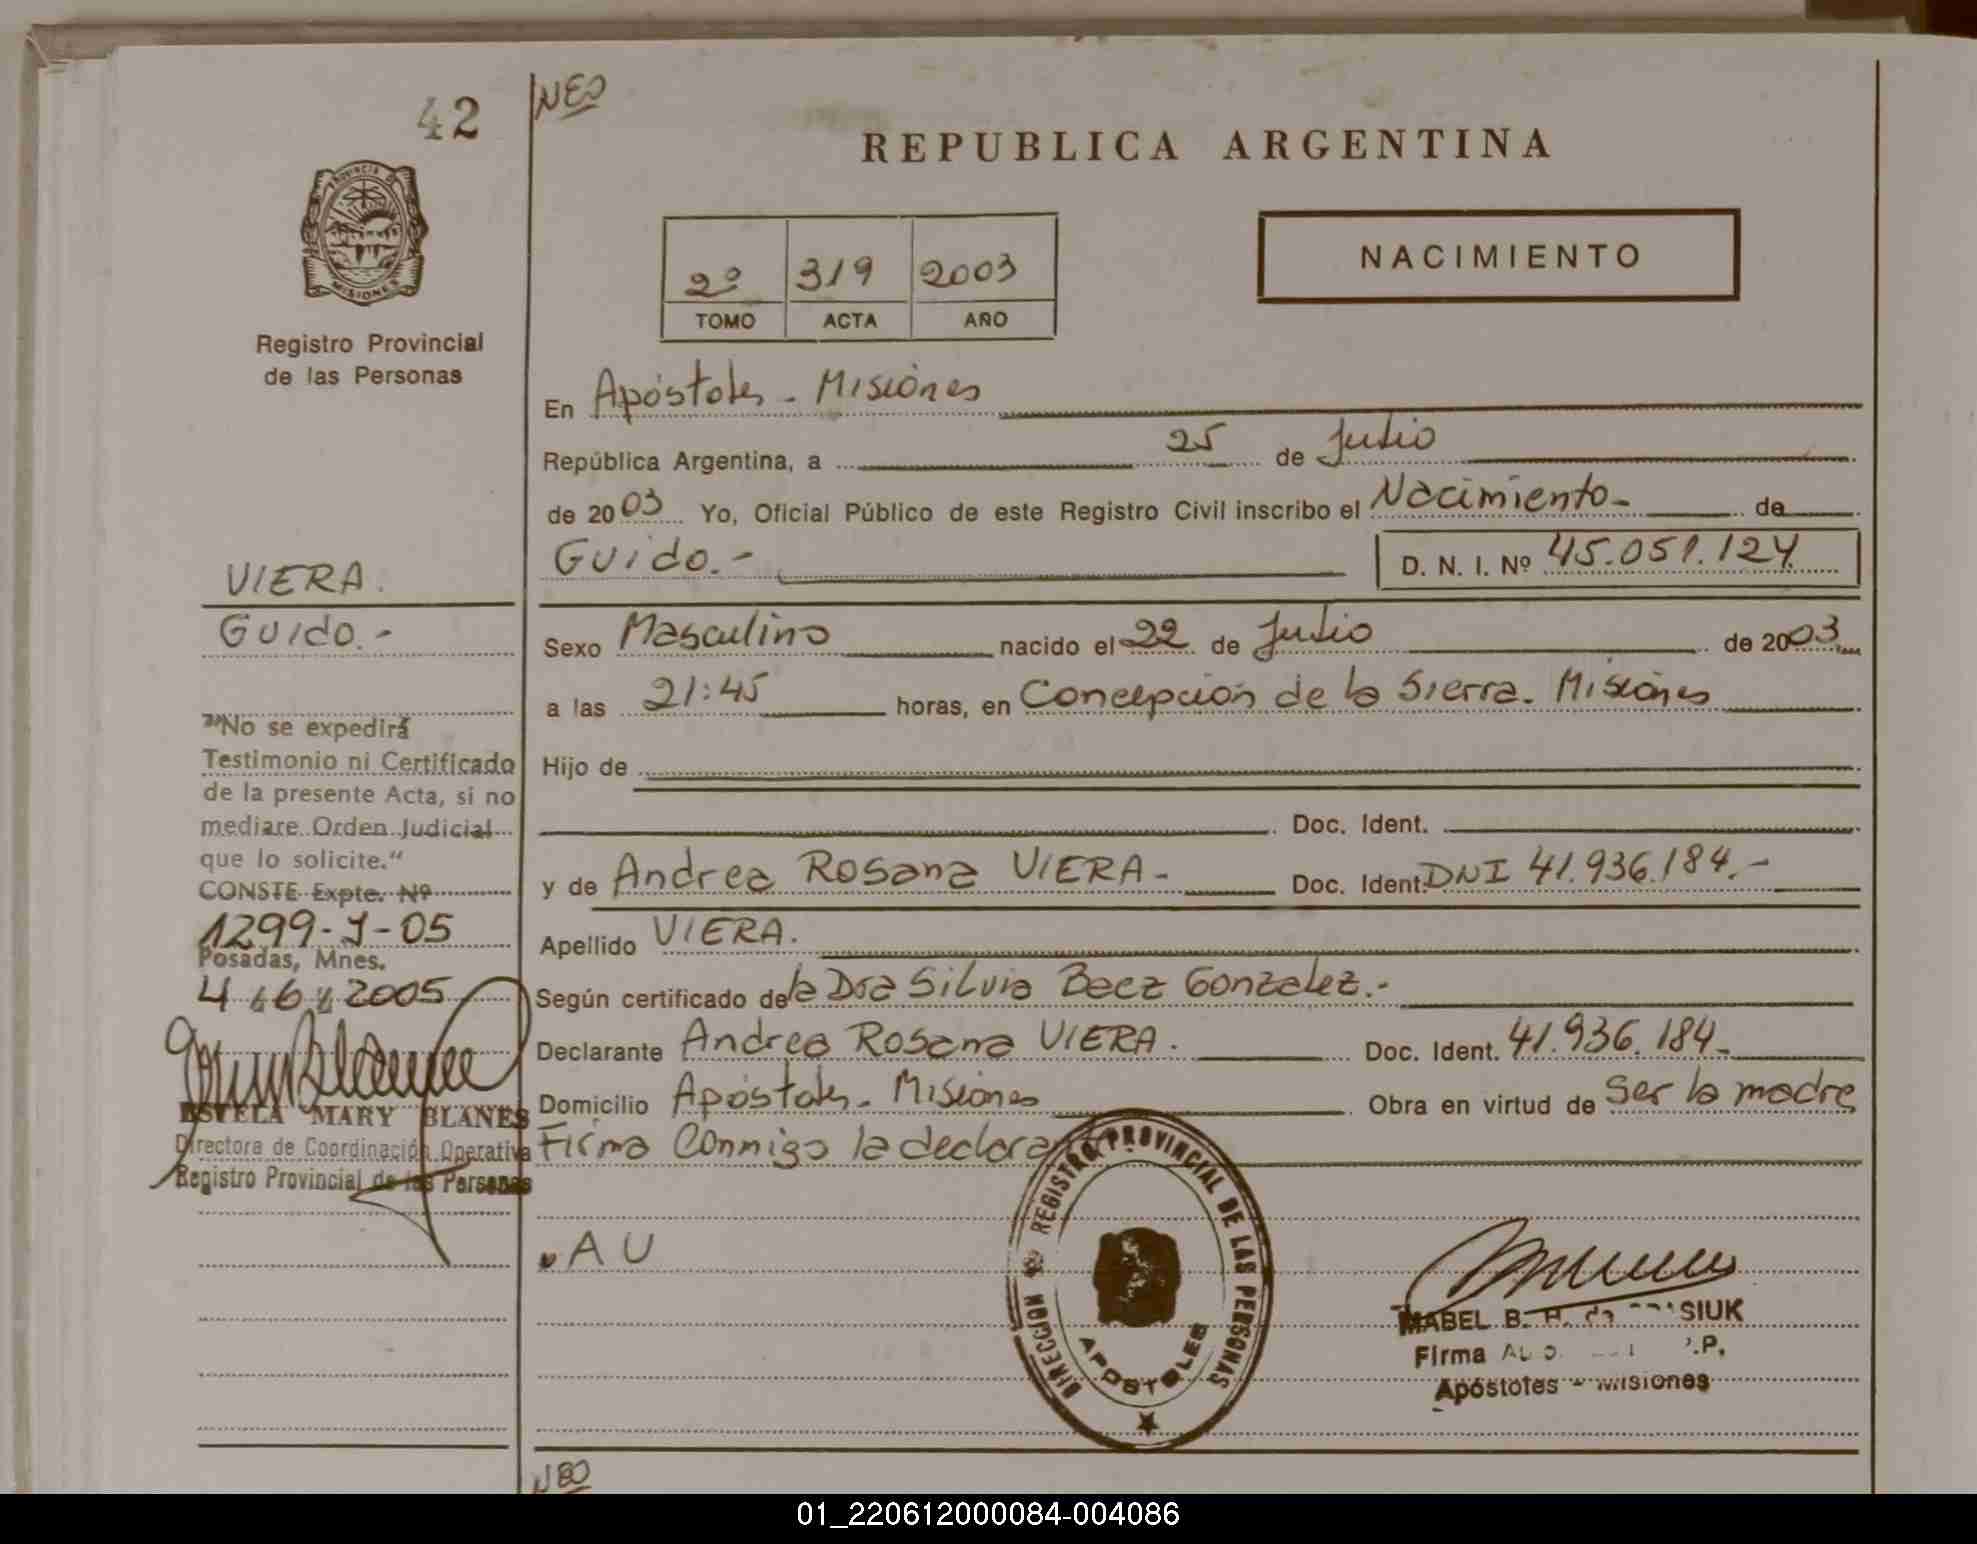 42
NEO
REPUBLICA ARGENTINA
PROVINCIA DE
MISIONES
Registro Provincial
de las Personas
2º 319 2003
TOMO ACTA AÑO
NACIMIENTO
En Apóstoles - Misiones
República Argentina, a 25 de Julio
de 2003 Yo, Oficial Público de este Registro Civil inscribo el Nacimiento- de
Guido.-
D. N. I. Nº 45.051.124
VIERA.
Guido.-
Sexo Masculino nacido el 22 de Julio de 2003
a las 21:45 horas, en Concepción de la Sierra. Misiones
Hijo de
Doc. Ident.
y de Andrea Rosana VIERA- Doc. Ident. DNI 41.936.184.-
Apellido VIERA.
Según certificado de la Dra Silvia Baez Gonzalez.-
Declarante Andrea Rosana VIERA. Doc. Ident. 41.936.184-
Domicilio Apóstoles - Misiones Obra en virtud de ser la madre
Firma Conmigo la
"No se expedirá
Testimonio ni Certificado
de la presente Acta, si no
mediare Orden Judicial
que lo solicite."
CONSTE Expte. Nº
1299-J-05
Posadas, Mnes.
4 6 2005
ESTELA MARY BLANES
Directora de Coordinación Operativa
Registro Provincial de las Personas
AU
DIRECCION REGISTRO PROVINCIAL DE LAS PERSONAS
APOSTOLES
MABEL B. H. de
Firma
Apóstoles - Misiones
01_220612000084-004086